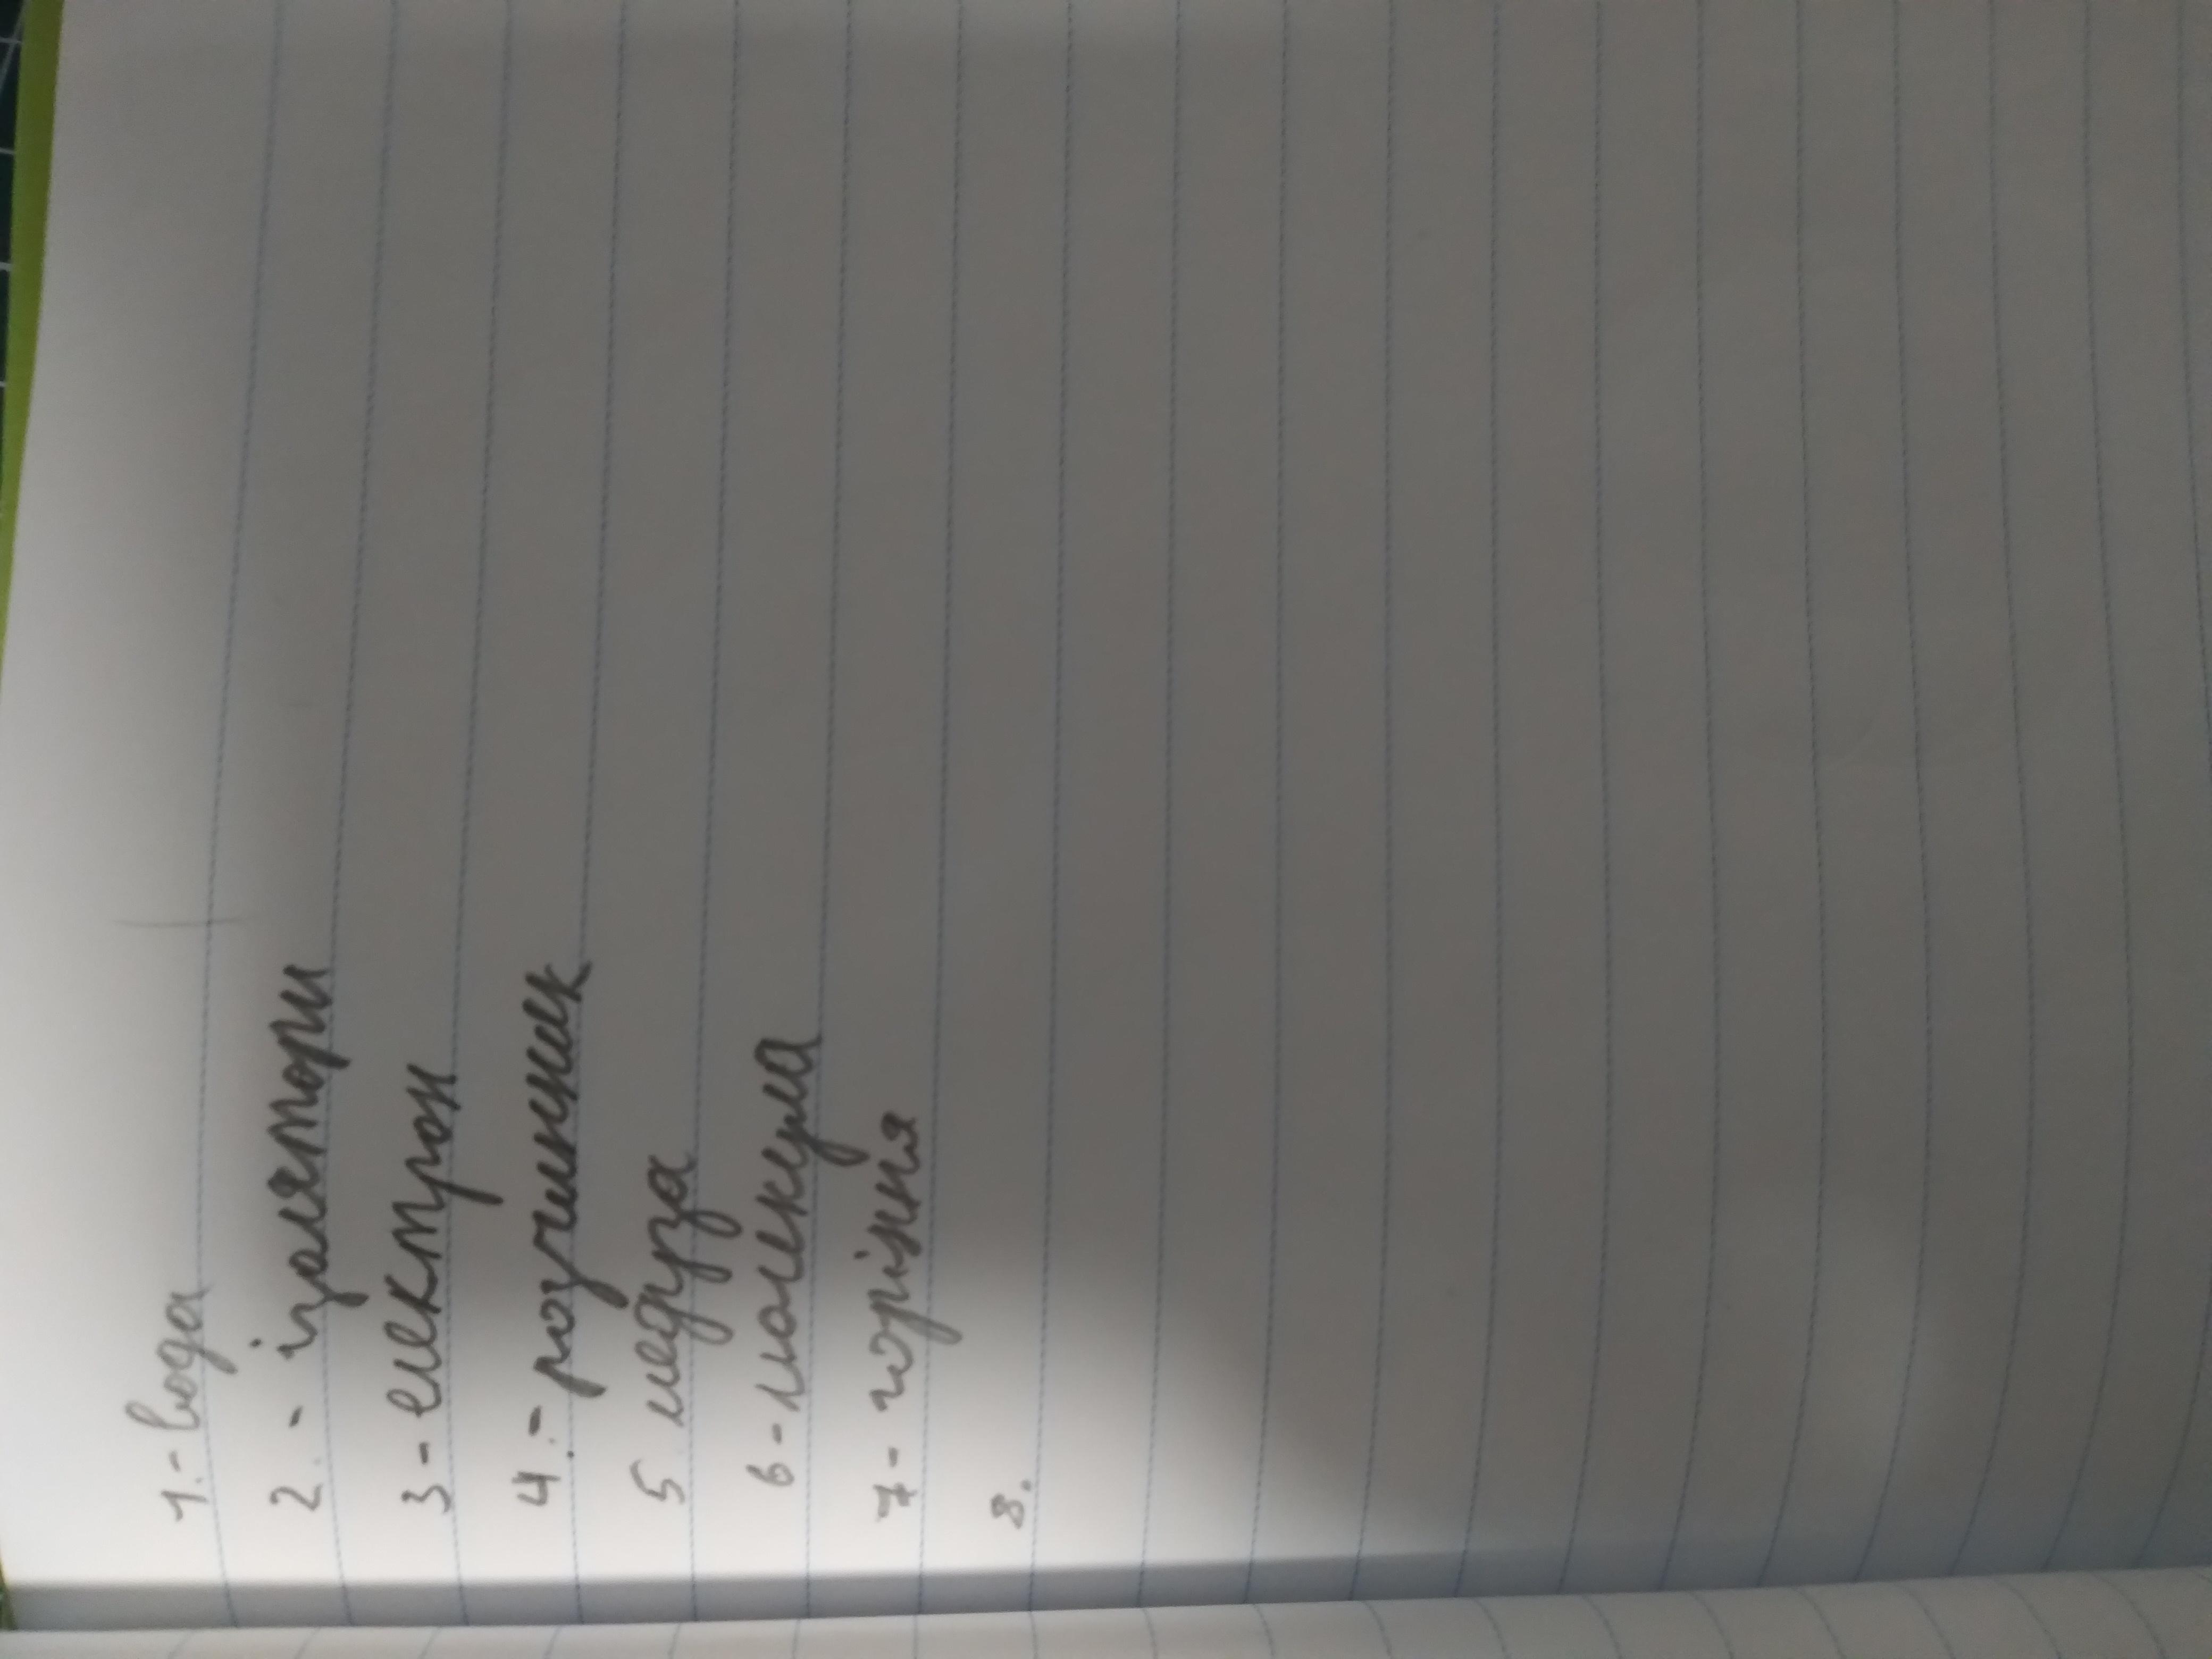 1.- вода
2.- ізолятори
3 - електрон
4.- розчинник
5 медуза
6 - молекула
7 - горіння
8.